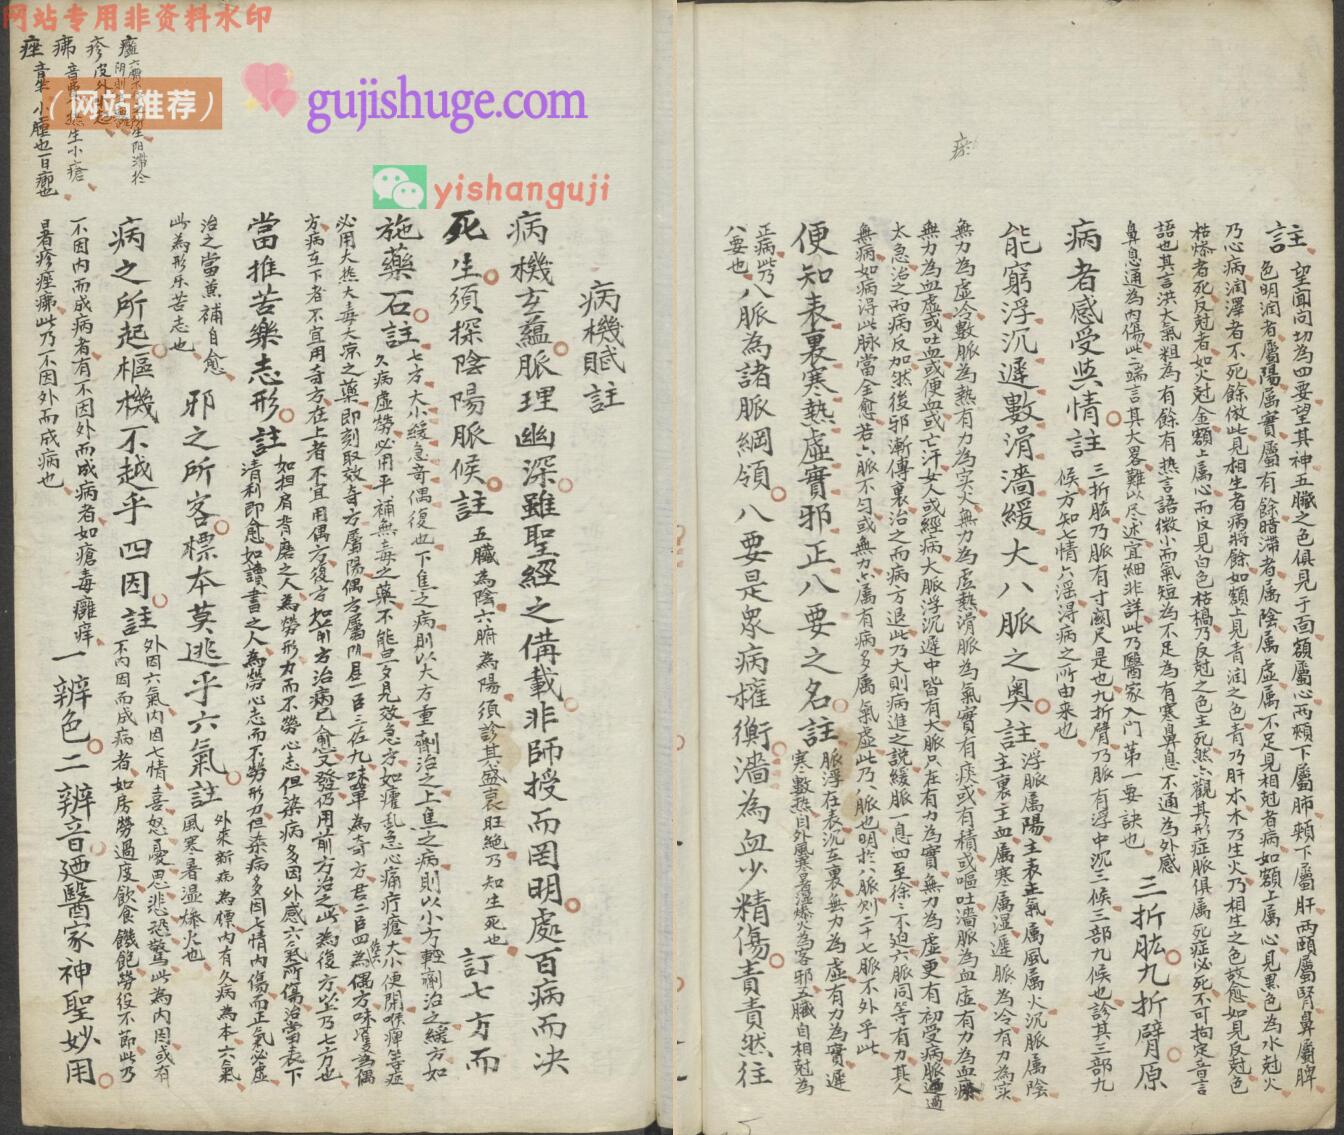 网站专用非资料水印
（网站推荐）
gujishuge.com
yishanguji
病機賦註
病機玄蘊脈理幽深雖聖經之備載非師授而罔明處百病而决
死生須探陰陽脈候註 五臟為陰六腑為陽須診其盛衰旺絕乃知生死也 訂七方而
施藥石註 七方大小緩急奇偶復也下焦之病則以大方重劑治之上焦之病則以小方輕劑治之緩方如
久病虛勞必用平補無毒之藥不能旦夕見效急方如癨亂急心痛疔瘡大小便閉喉痺等症
必用大热大毒大凉之藥即刻取效奇方屬陽偶方屬阴君一臣三佐九味單為奇方君二臣四佐六為偶方味雙為偶
方病在下者不宜用奇方在上者不宜用偶方復方如前方治病已愈又發仍用前方治之此為復方此乃七方也
當推苦樂志形註 如担肩背磨之人為勞形力而不勞心志但染病多因外感六氣所傷治當表下
清利即愈如讀書之人為勞心志而不勞形力但染病多因七情内傷而正氣必虛
治之當蒐補自愈
此為形乐苦志也 邪之所客標本莫逃乎六氣註 外來新病為標内有久病為本六氣
風寒暑湿燥火也
病之所起樞機不越乎四因註 外因六氣内因七情喜怒憂思悲恐驚此為内因或有
不内因而成病者如房勞過度飲食饑飽勞役不節此乃
不因内而成病者有不因外而成病者如瘡毒癰痒
暑疹痤疿此乃不因外而成病也 一辨色二辨音迺醫家神聖妙用
疹皮外
疿音弗 热生小瘡
痤音坐 小腫也一曰癤也
註 望聞问切為四要望其神五臟之色俱見于面額屬心两頰下屬肺頰下屬肝两頤屬腎鼻屬脾
色明润者屬陽属實屬有餘暗滞者属陰属虚属不足見相尅者病如額上属心見黑色為水尅火
乃心病润澤者不死餘倣此見相生者病將餘如額上見青润之色青乃肝木木乃生火乃相生之色故愈如見反尅色
枯燥者死反尅者如火尅金額上属心而反見白色枯槁乃反尅之色主死然六觀其形症脈俱属死症必死不可拘定音言
語也其言洪大氣粗為有餘有热言語微小而氣短為不足為有寒鼻息不通為外感
鼻息通為内傷此二端言其大畧難以尽述宜細非詳此乃醫家入門第一要訣也 三折肱九折臂原
病者感受與情註 三折肱乃脈有寸関尺是也九折臂乃脈有浮中沉三候三部九候也診其三部九
候方知七情六淫得病之所由来也
能窮浮沉遲數滑濇緩大八脈之奥註 浮脈属陽主表主氣属風属火沉脈属陰
主裏主血属寒属湿遲脈為冷有力為实
無力為虚冷數脈為熱有力為实火無力為虚熱滑脈為氣實有痰或有積或嘔吐濇脈為血虚有力為血瘀
無力為血虛或吐血或便血或亡汗女人或經病大脈浮沉遲中皆有大脈只在有力為實無力為虚更有初受病脈過
太急治之而病反加然後邪漸傳裏治之而病方退此乃大則病進之說緩脈一息四至徐徐不迫六脈同等有力其人
無病如病得此脉當全愈若六脈不匀或無力六属有病多属氣虚此乃八脈也明於八脈则二十七脈不外乎此
便知表裏寒熱虛實邪正八要之名註 脈浮在表沉在裏無力為虚有力為實遲
寒數热自外風寒暑濕燥火為客邪五臟自相尅為
正病此乃
八要也 八脈為諸脈綱領八要是衆病權衡濇為血少精傷責責然往
瘀